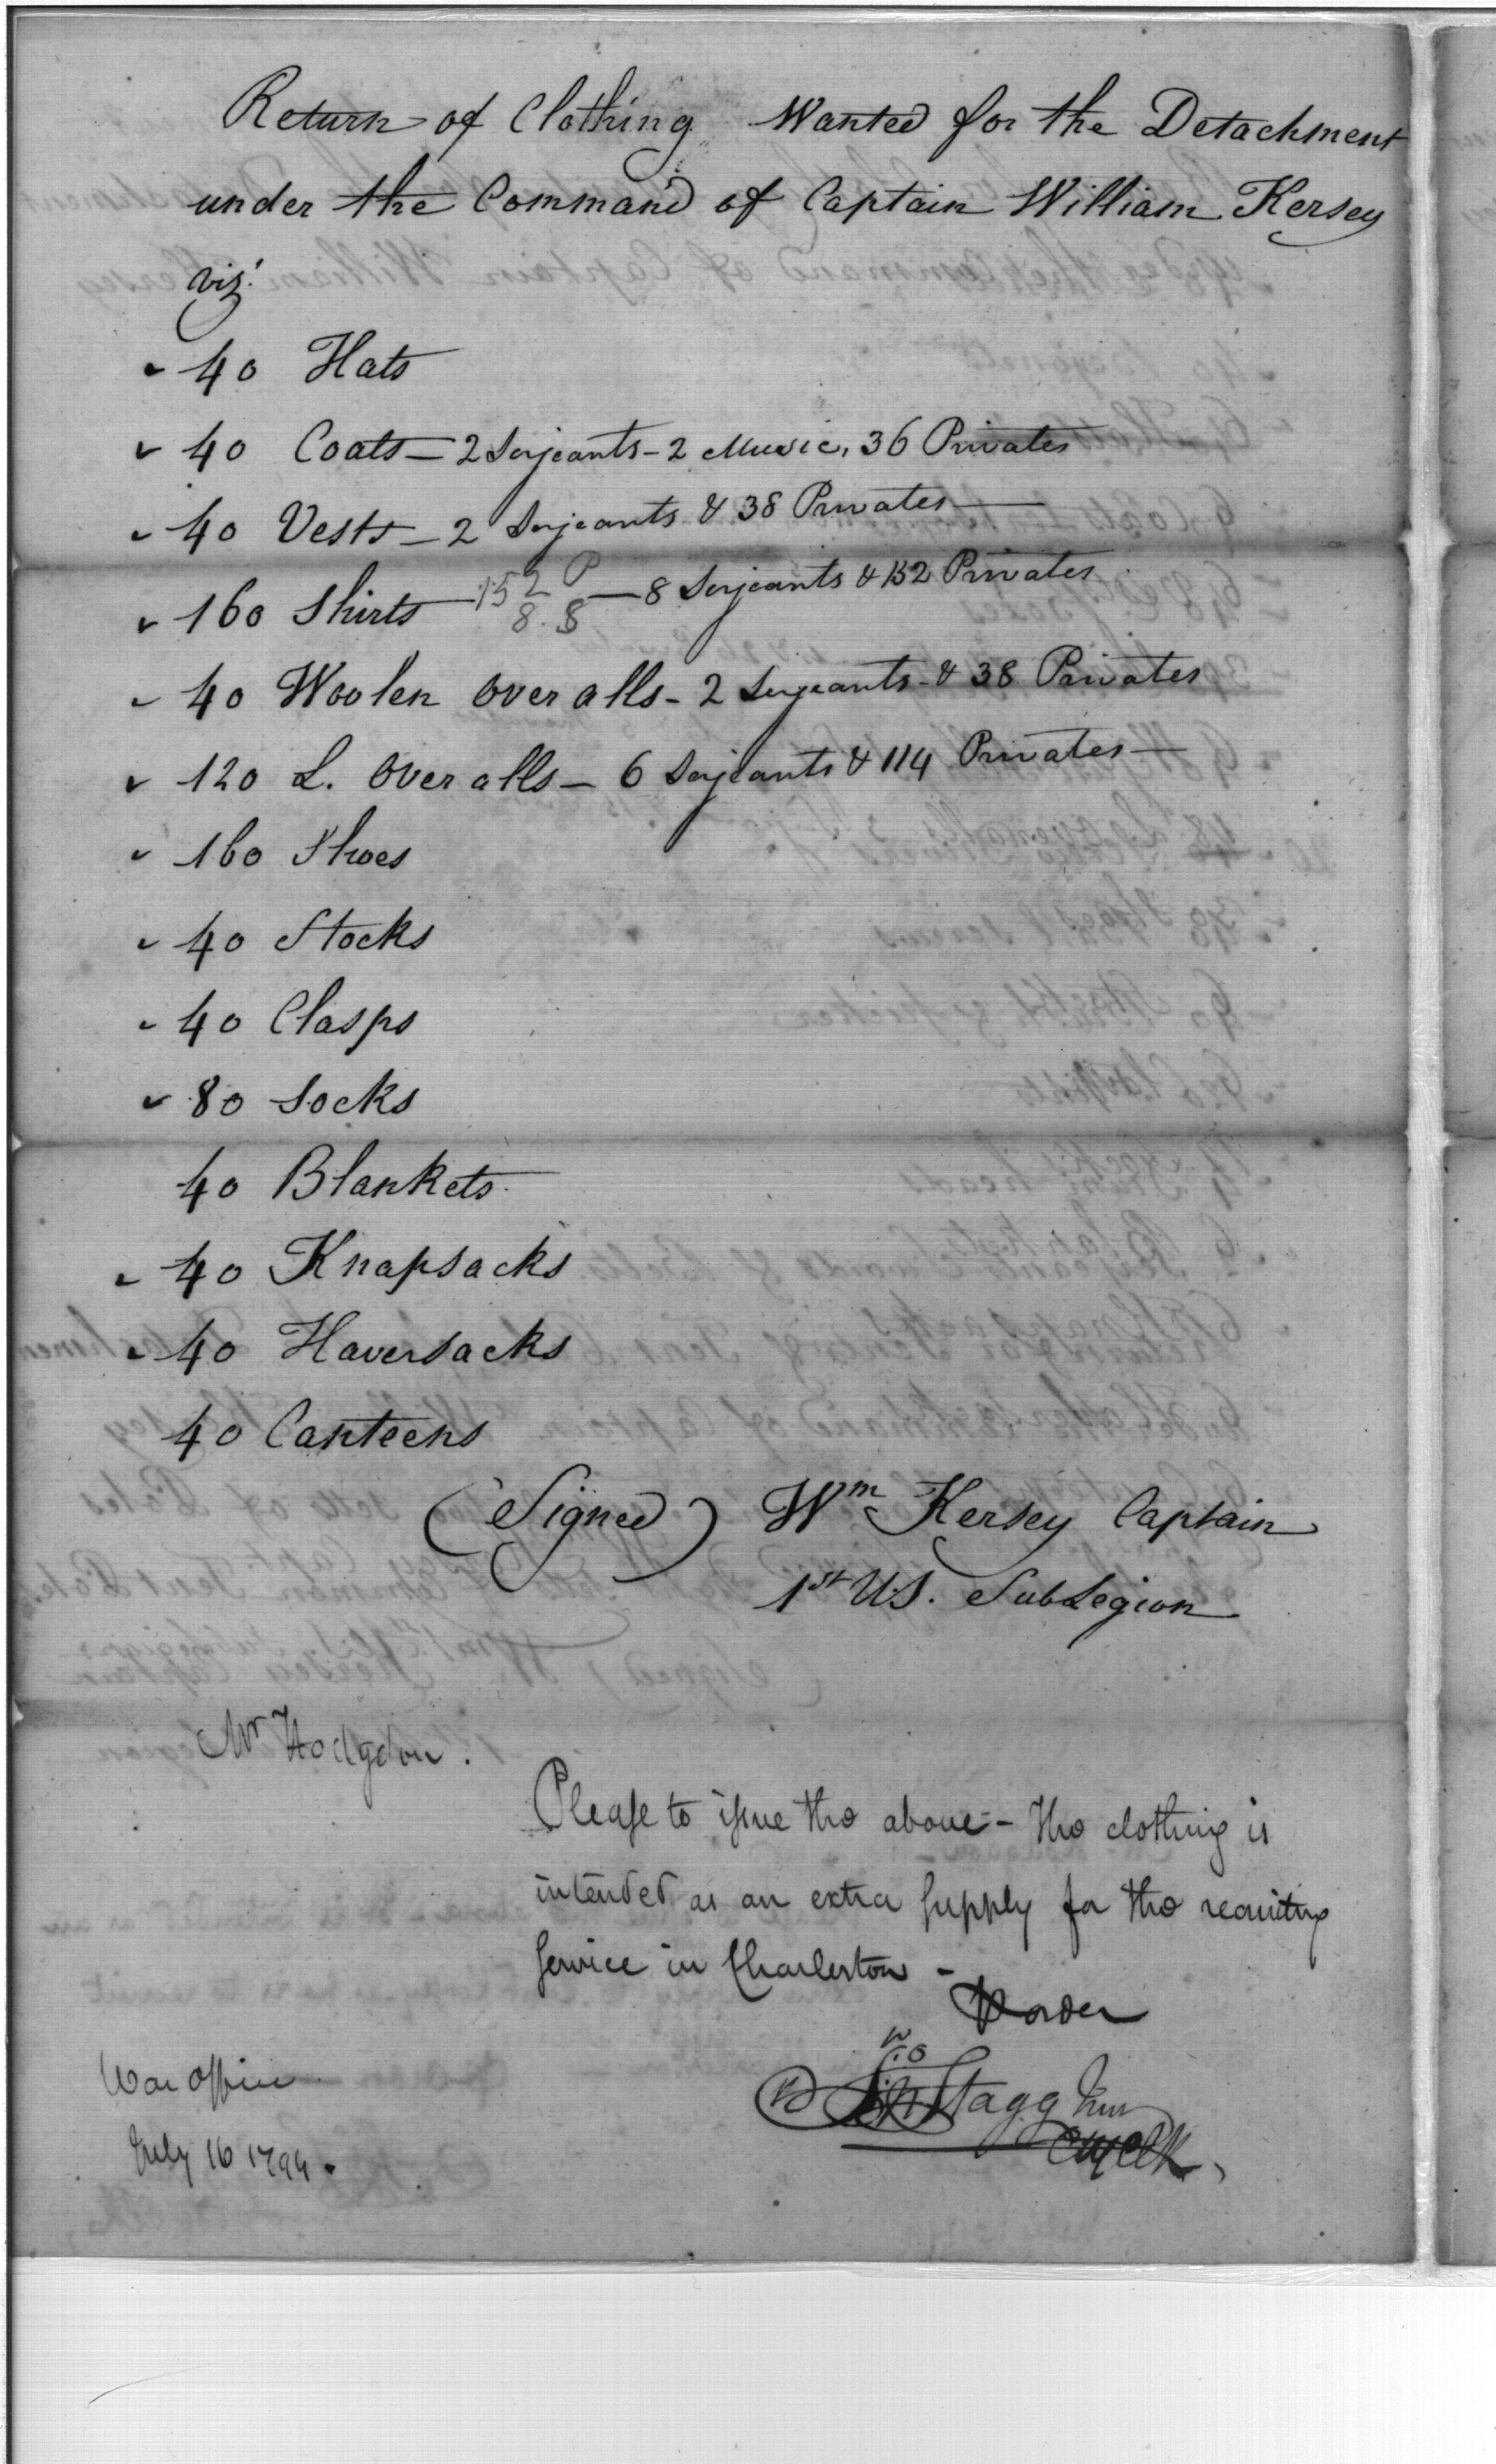 Return of Clothing Wanted for the Detachment
under the Command of Captain William Kersey
viz.t
40 Hats
40 Coats — 2 Serjeants - 2 Music, 36 Privates
40 Vests — 2 Serjeants & 38 Privates —
160 Shirts — 152 P 8. S — 8 Serjeants & 152 Privates
40 Woolen Over alls - 2 Serjeants & 38 Privates
120 L. Over alls — 6 Serjeants & 114 Privates —
160 Shoes
40 Stocks
40 Clasps
80 Socks
40 Blankets
40 Knapsacks
40 Haversacks
40 Canteens
(Signed) Wm Kersey Captain
1st U.S. SubLegion
Mr Hodgdon.
Please to issue the above - The clothing is
intended as an extra supply for the recruiting
service in Charleston -
War office
July 16 1794.
Jno Stagg Junr